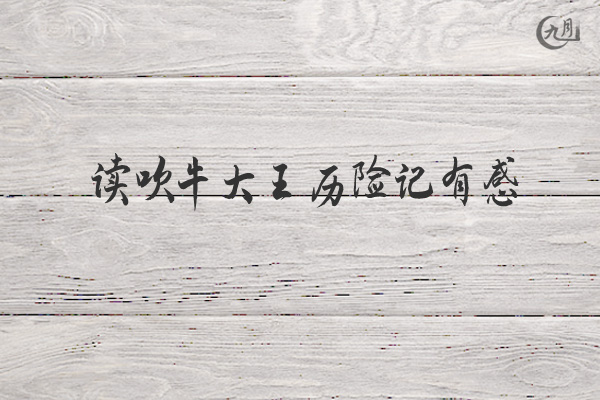 九月
读吹牛大王历险记有感